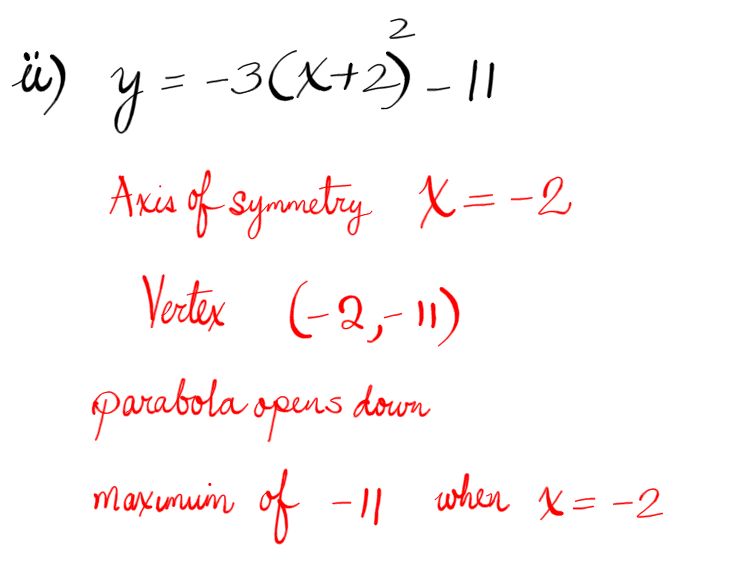 ii) y = -3(x+2)² - 11
Axis of symmetry x = -2
Vertex (-2, -11)
parabola opens down
maximum of -11 when x = -2